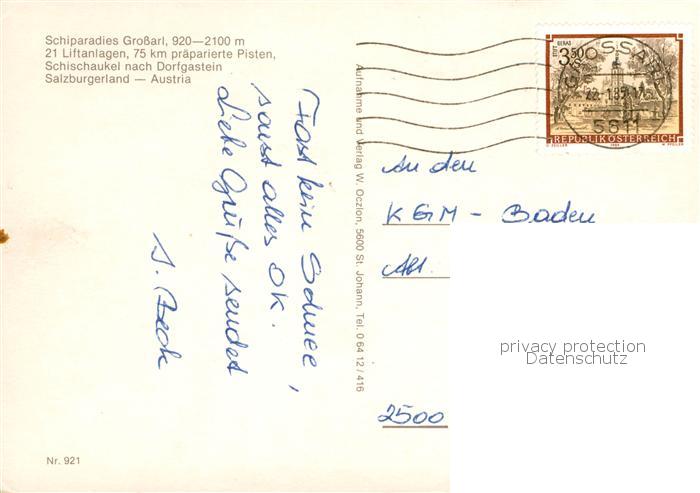 Schiparadies Großarl, 920—2100 m
21 Liftanlagen, 75 km präparierte Pisten,
Schischaukel nach Dorfgastein
Salzburgerland — Austria
Fast kein Schnee,
sonst alles OK.
Liebe Grüße sendet
Aufnahme und Verlag W. Oczlon, 5600 St. Johann, Tel. 0 64 12 / 416
STIFT GERAS
3.50
REPUBLIK ÖSTERREICH
GROSSARL
5611
An den
KGM - Baden
Abt.
2500
privacy protection
Datenschutz
Nr. 921